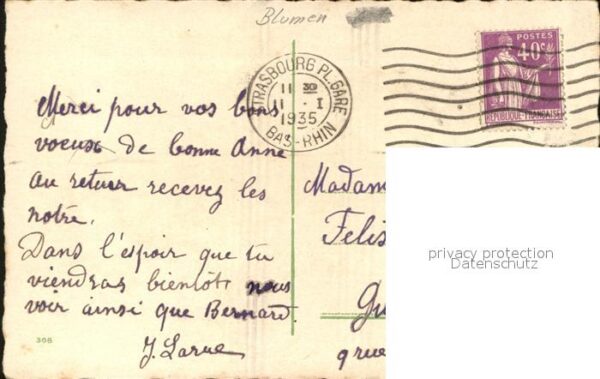 Blumen
STRASBOURG PL. GARE
11 30
11 - I
1935
BAS-RHIN
POSTES
40c
REPUBLIQUE FRANÇAISE
Merci pour vos bons
voeux de bonne Anne
au retour recevez les
notre.
Dans l'espoir que tu
viendras bientôt nous
voir ainsi que Bernard
J. Larue
368
Madam
Felis
Gu
grue
privacy protection
Datenschutz